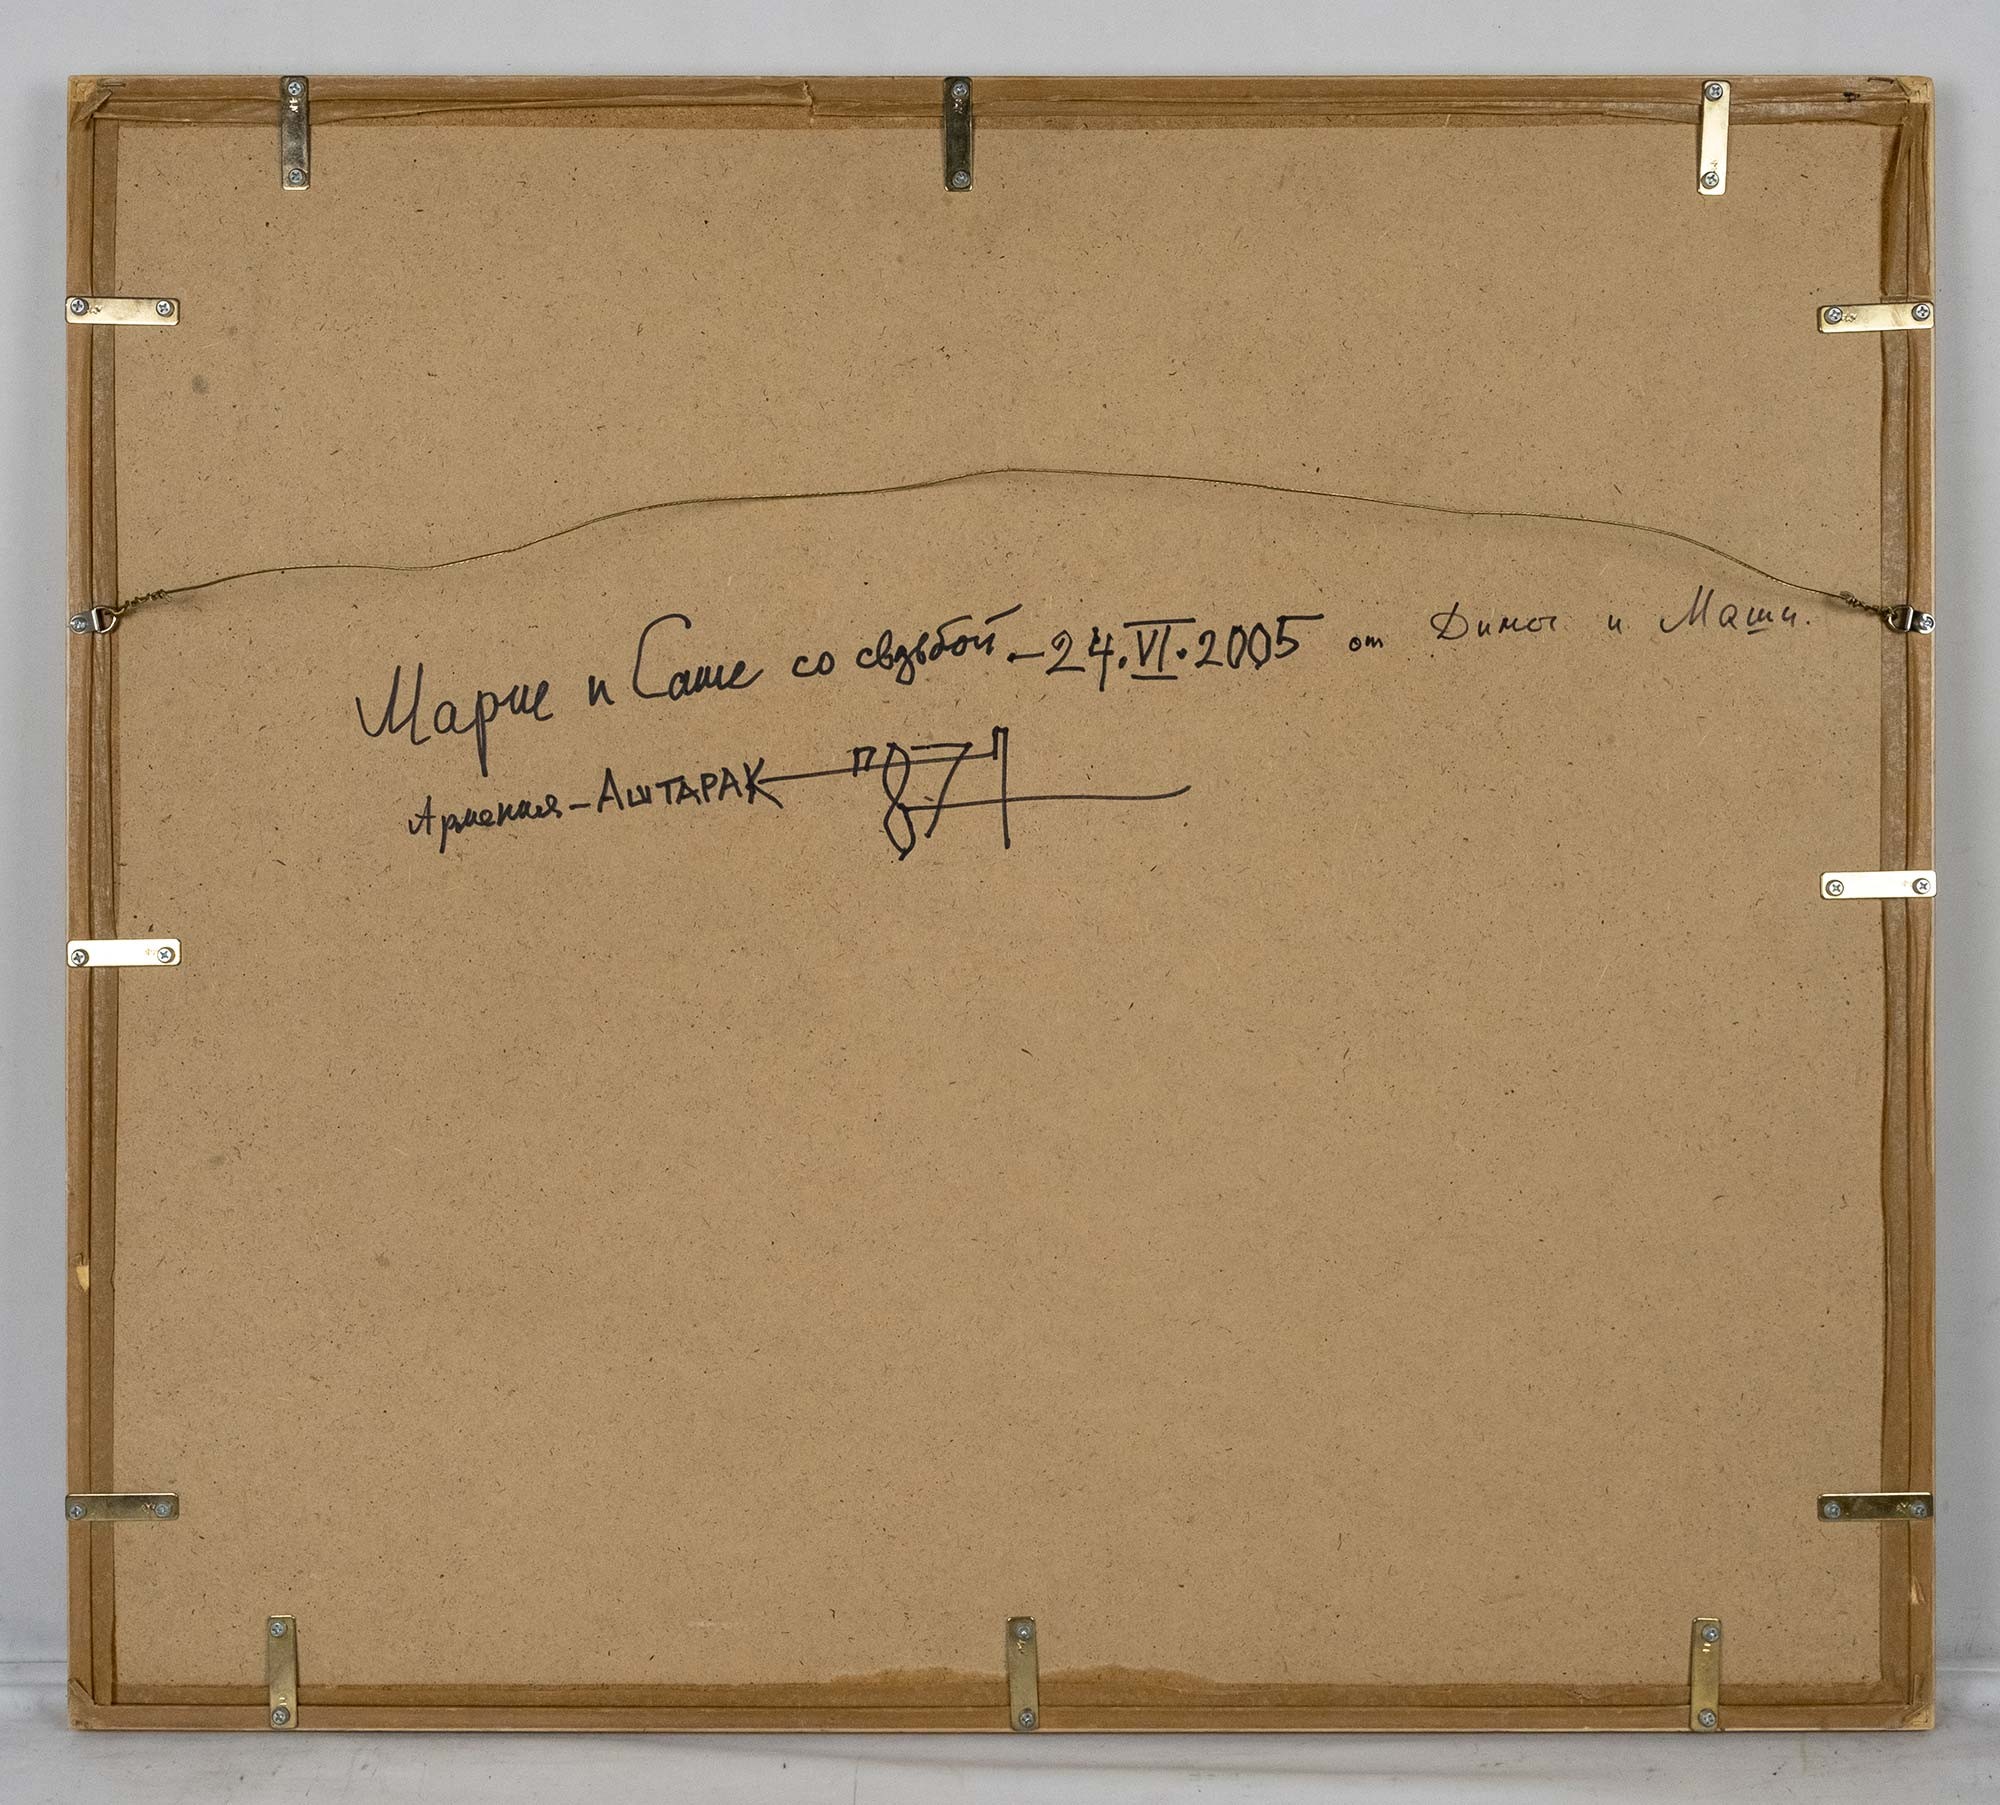 Марие и Саше со свадьбой – 24.VI.2005 от Димы и Маши.
Армения – АШТАРАК – "87"